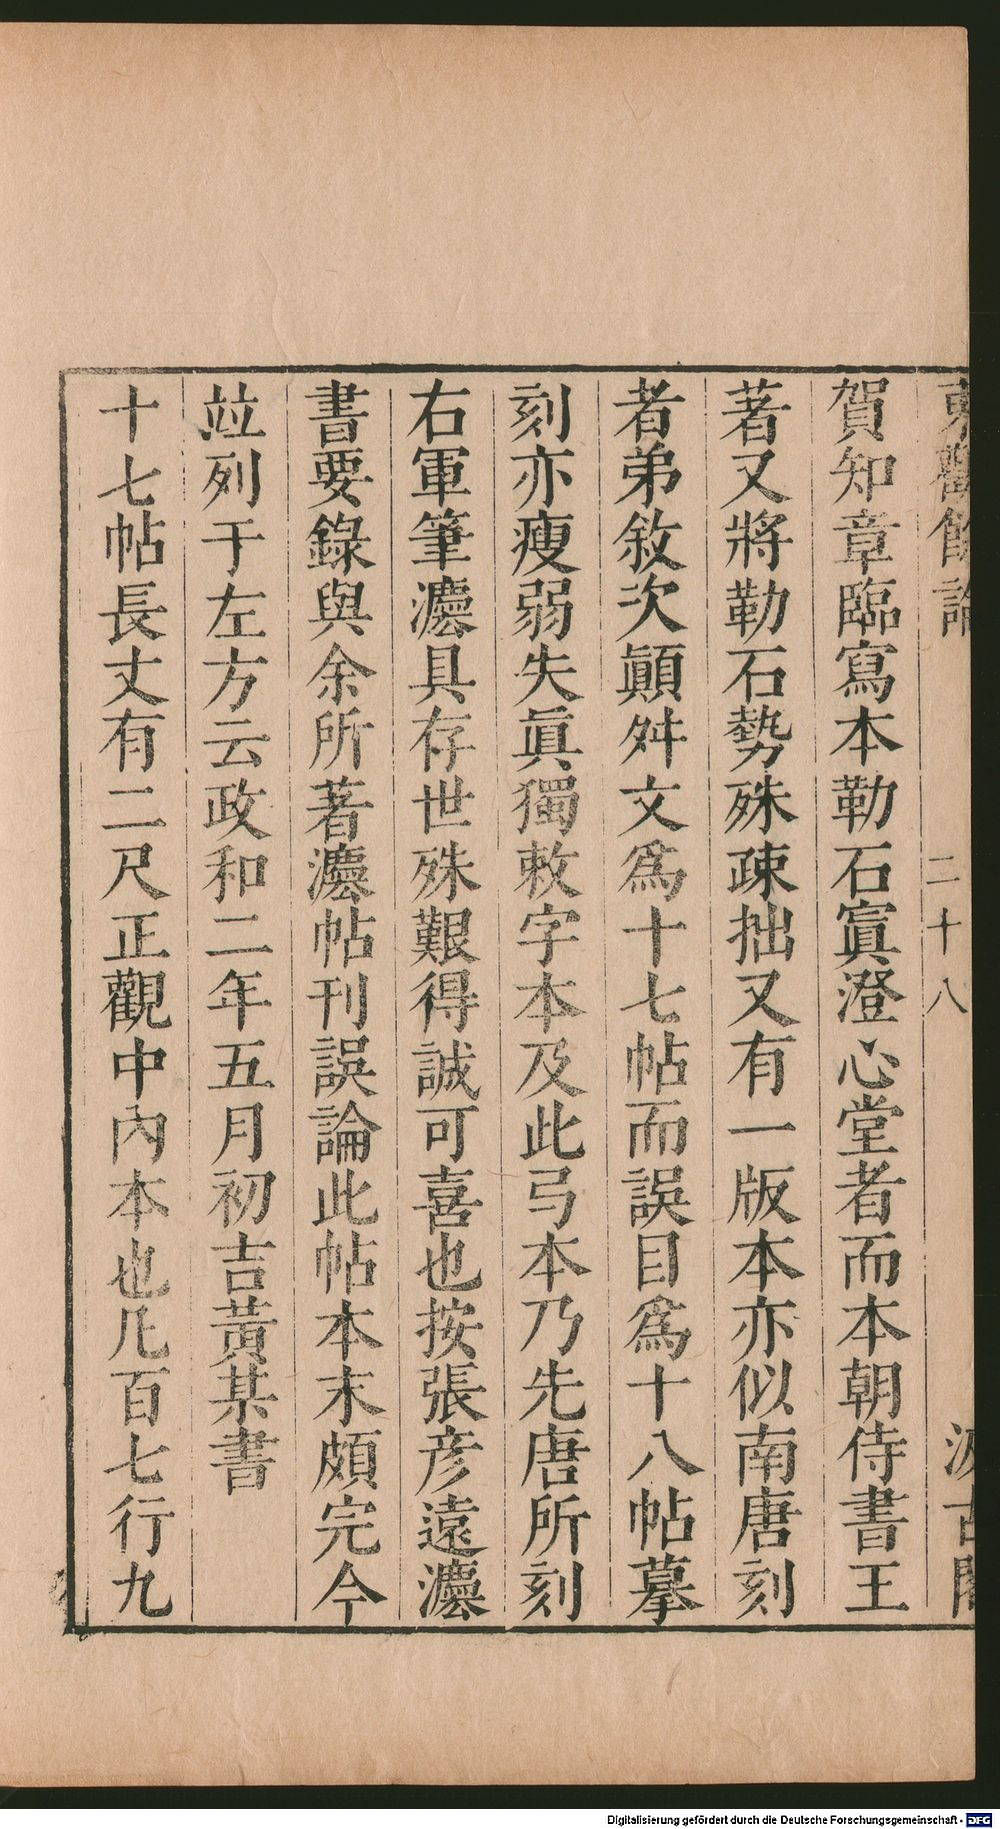 東觀餘論 二十八 汲古閣
賀知章臨寫本勒石寘澄心堂者而本朝侍書王
著又將勒石勢殊疎拙又有一版本亦似南唐刻
者弟敘次顚舛文爲十七帖而誤目爲十八帖摹
刻亦瘦弱失眞獨敕字本及此弓本乃先唐所刻
右軍筆灋具存世殊艱得誠可喜也按張彥遠灋
書要錄與余所著灋帖刊誤論此帖本末頗完今
竝列于左方云政和二年五月初吉黃某書
十七帖長丈有二尺正觀中內本也凡百七行九
Digitalisierung gefördert durch die Deutsche Forschungsgemeinschaft - DFG